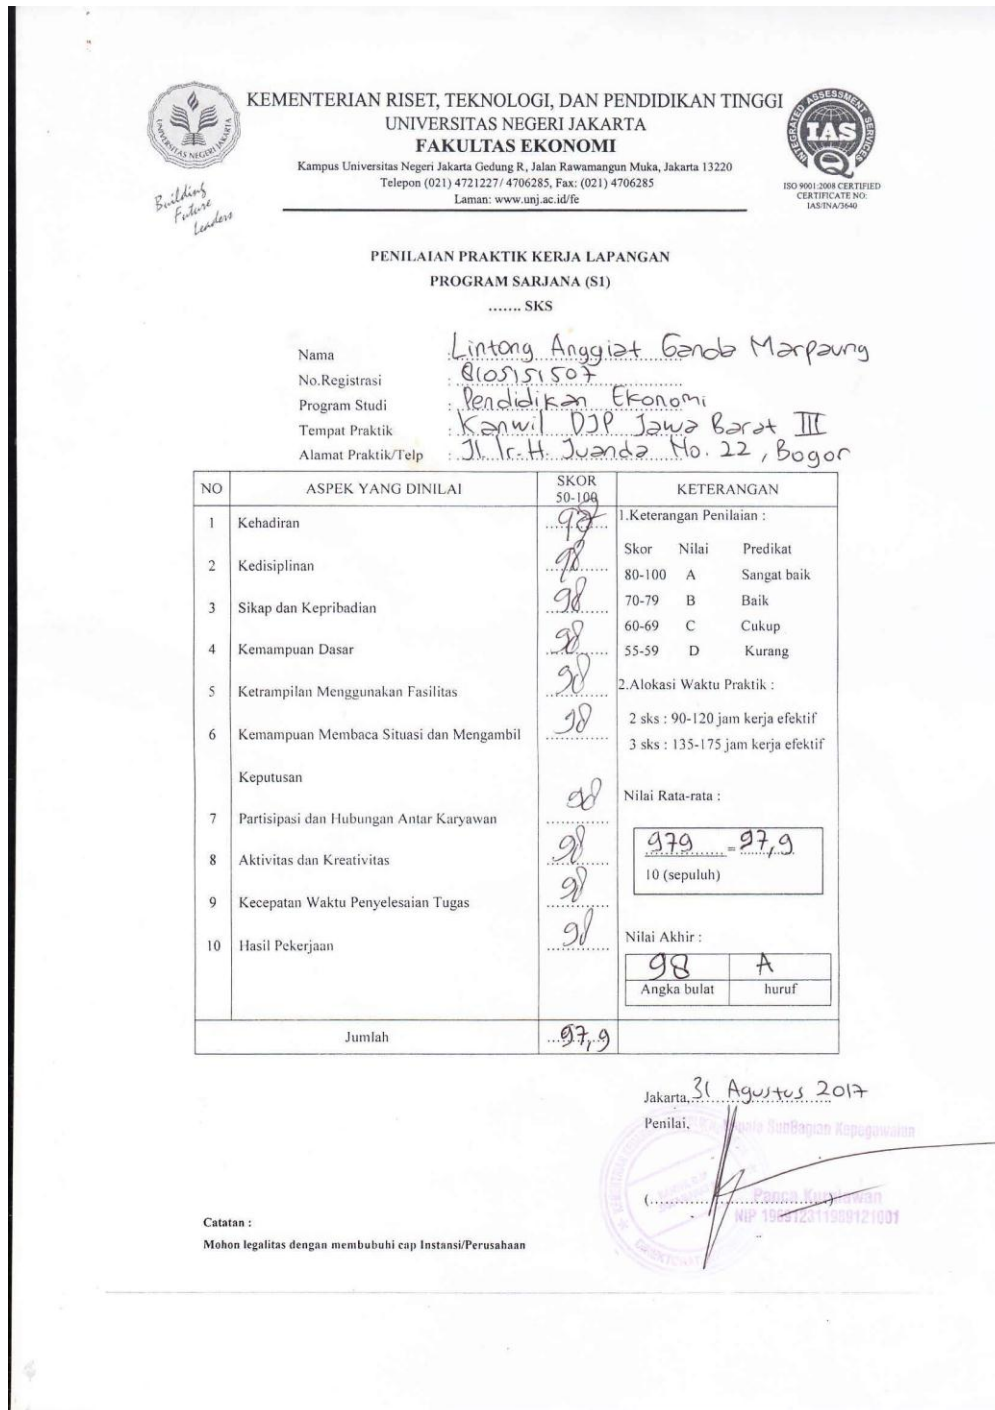 KEMENTERIAN RISET, TEKNOLOGI, DAN PENDIDIKAN TINGGI
UNIVERSITAS NEGERI JAKARTA
FAKULTAS EKONOMI
Kampus Universitas Negeri Jakarta Gedung R, Jalan Rawamangun Muka, Jakarta 13220
Telepon (021) 4721227/ 4706285, Fax: (021) 4706285
Laman: www.unj.ac.id/fe
UNIVERSITAS NEGERI JAKARTA
Building
Future
Leaders
INTEGRATED ASSESSMENT SERVICES
IAS
ISO 9001:2008 CERTIFIED
CERTIFICATE NO:
IAS/INA/3640
PENILAIAN PRAKTIK KERJA LAPANGAN
PROGRAM SARJANA (S1)
....... SKS
Nama : Lintong Anggiat Ganda Marpaung
No.Registrasi : 8105151507
Program Studi : Pendidikan Ekonomi
Tempat Praktik : Kanwil DJP Jawa Barat III
Alamat Praktik/Telp : Jl. Ir. H. Juanda No. 22, Bogor
NO ASPEK YANG DINILAI SKOR 50-100 KETERANGAN
1 Kehadiran 97
2 Kedisiplinan 98
3 Sikap dan Kepribadian 98
4 Kemampuan Dasar 98
5 Ketrampilan Menggunakan Fasilitas 98
6 Kemampuan Membaca Situasi dan Mengambil 98
Keputusan
7 Partisipasi dan Hubungan Antar Karyawan 98
8 Aktivitas dan Kreativitas 98
9 Kecepatan Waktu Penyelesaian Tugas 98
10 Hasil Pekerjaan 98
1.Keterangan Penilaian :
Skor Nilai Predikat
80-100 A Sangat baik
70-79 B Baik
60-69 C Cukup
55-59 D Kurang
2.Alokasi Waktu Praktik :
2 sks : 90-120 jam kerja efektif
3 sks : 135-175 jam kerja efektif
Nilai Rata-rata :
979 = 97,9
10 (sepuluh)
Nilai Akhir :
98 A
Angka bulat huruf
Jumlah 97,9
Jakarta, 31 Agustus 2017
Penilai,
Kepala SunBagian Kepegawaian
(..............................)
Panca Kurniawan
NIP
Catatan :
Mohon legalitas dengan membubuhi cap Instansi/Perusahaan